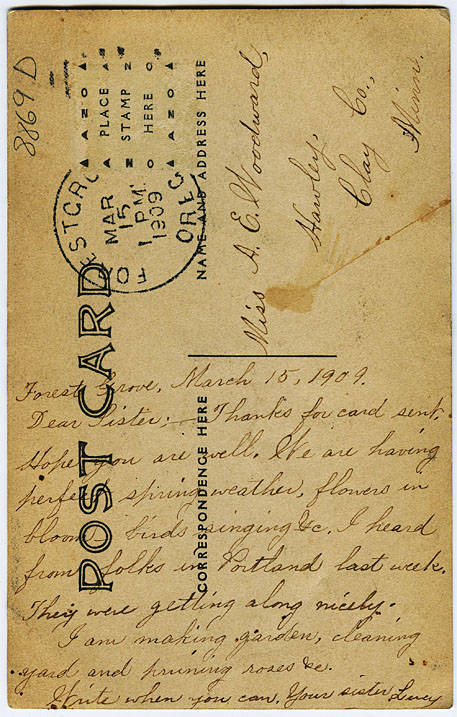 8869 D
AZO
PLACE
STAMP
HERE
AZO
FOREST GRO
MAR
15
1 PM
1909
OREG
POST CARD
NAME AND ADDRESS HERE
Miss A. E. Woodward,
Hawley,
Clay Co.,
Minn.
CORRESPONDENCE HERE
Forest Grove, March 15, 1909.
Dear Sister:— Thanks for card sent.
Hope you are well. We are having
perfect spring weather, flowers in
bloom, birds singing &c. I heard
from folks in Portland last week.
They were getting along nicely.
I am making garden, cleaning
yard and pruning roses &c.
Write when you can. Your sister Lucy